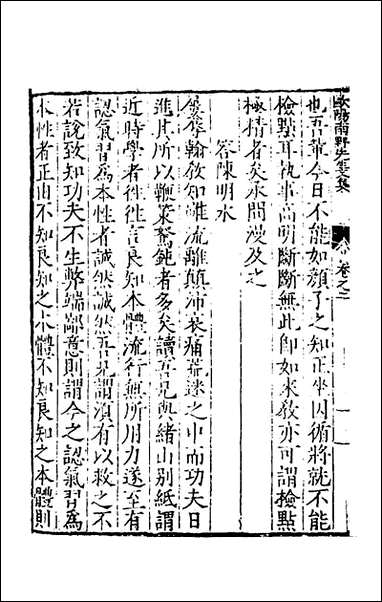 歐陽南野先生文集
卷之二
也吾輩今日不能如顏子之知正坐因循將就不能
檢點耳執事高明斷斷無此即如來敎亦可謂檢點
極精者矣承問漫及之
答陳明水
屢辱翰敎知雖流離顛沛衰痛荒迷之中而功夫日
進其所以鞭策駑鈍者多矣讀吾兄與緒山別紙謂
近時學者徃徃言良知本體流行無所用力遂至有
認氣習爲本性者誠然誠然吾兄謂須有以救之不
若說致知功夫不生弊端鄙意則謂今之認氣習爲
本性者正由不知良知之本體不知良知之本體則